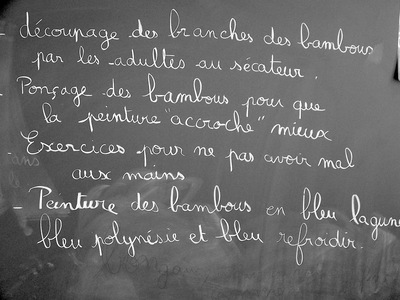 - découpage des branches des bambous
par les adultes au sécateur.
- Ponçage des bambous pour que
la peinture "accroche" mieux
- Exercices pour ne pas avoir mal
aux mains
- Peinture des bambous en bleu lagune
bleu polynésie et bleu refroidir.